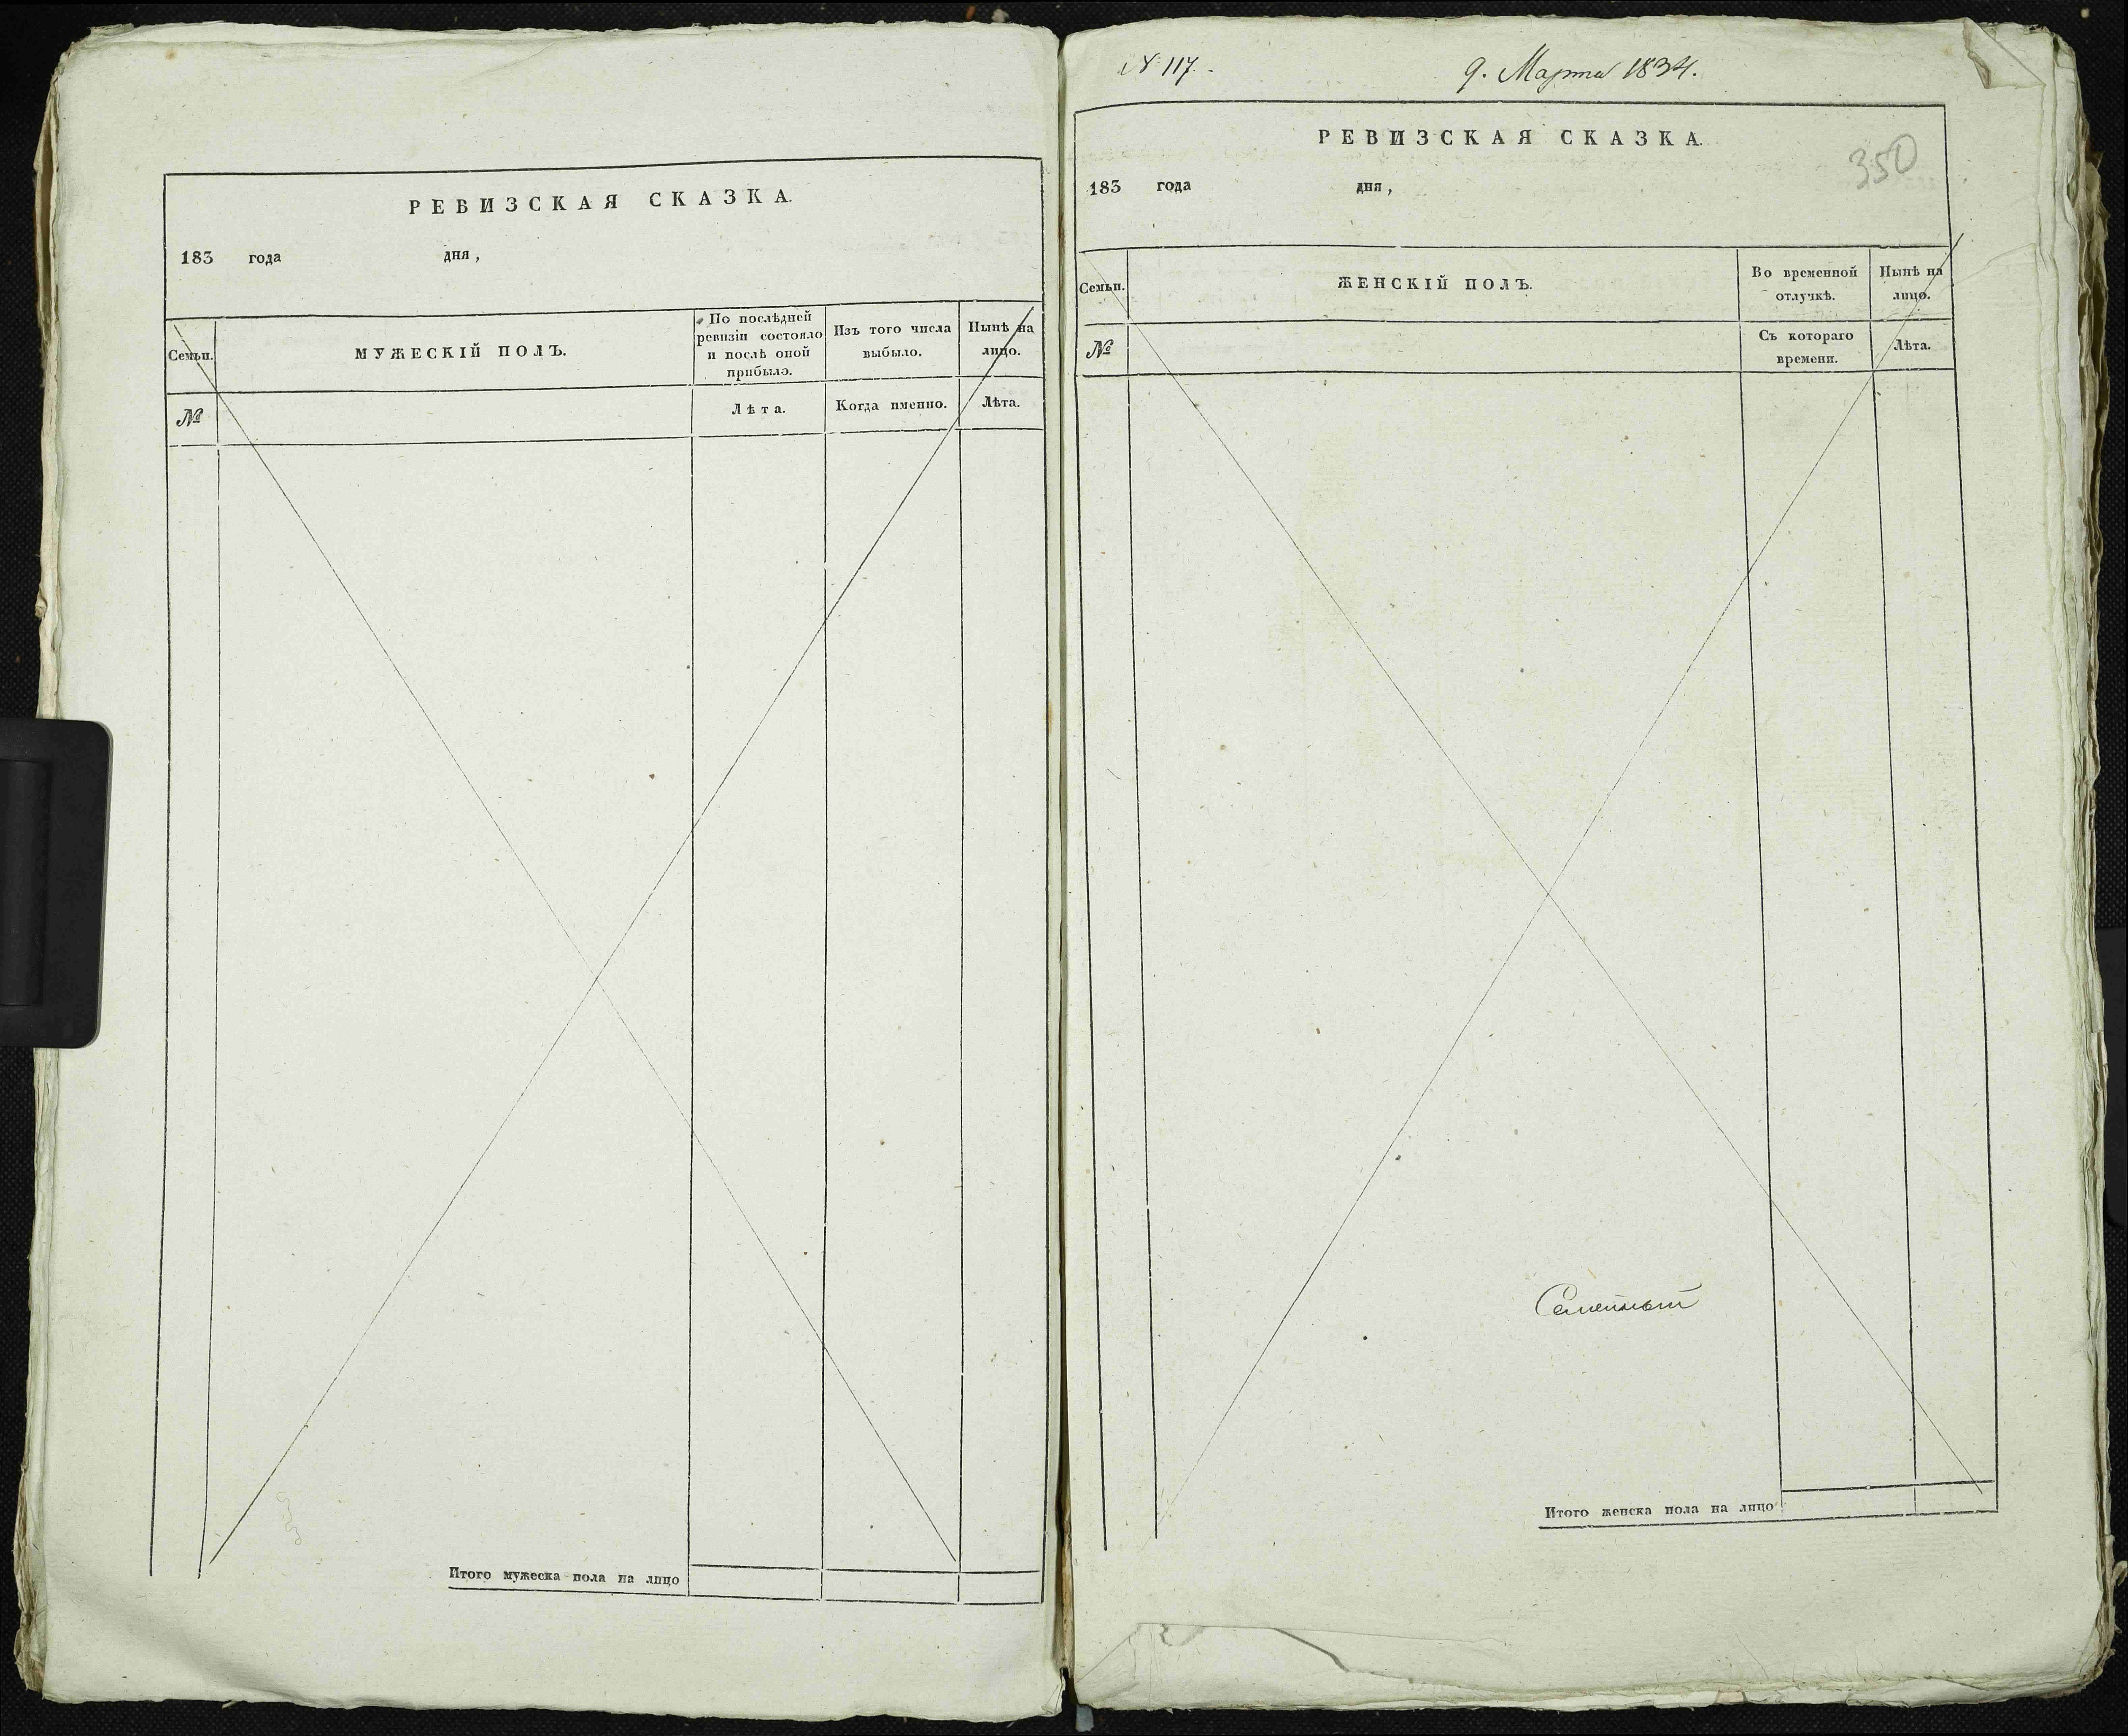 РЕВИЗСКАЯ СКАЗКА.
183 года дня,
Семьи.
МУЖЕСКІЙ ПОЛЪ.
По послѣдней
ревизіи состояло
и послѣ оной
прибыло.
Изъ того числа
выбыло.
Нынѣ на
лицо.
№
Лѣта.
Когда именно.
Лѣта.
Итого мужеска пола на лицо
№ 117.
9. Марта 1834.
РЕВИЗСКАЯ СКАЗКА.
350
183 года дня,
Семьи.
ЖЕНСКІЙ ПОЛЪ.
Во временной
отлучкѣ.
Нынѣ на
лицо.
№
Съ котораго
времени.
Лѣта.
Итого женска пола на лицо